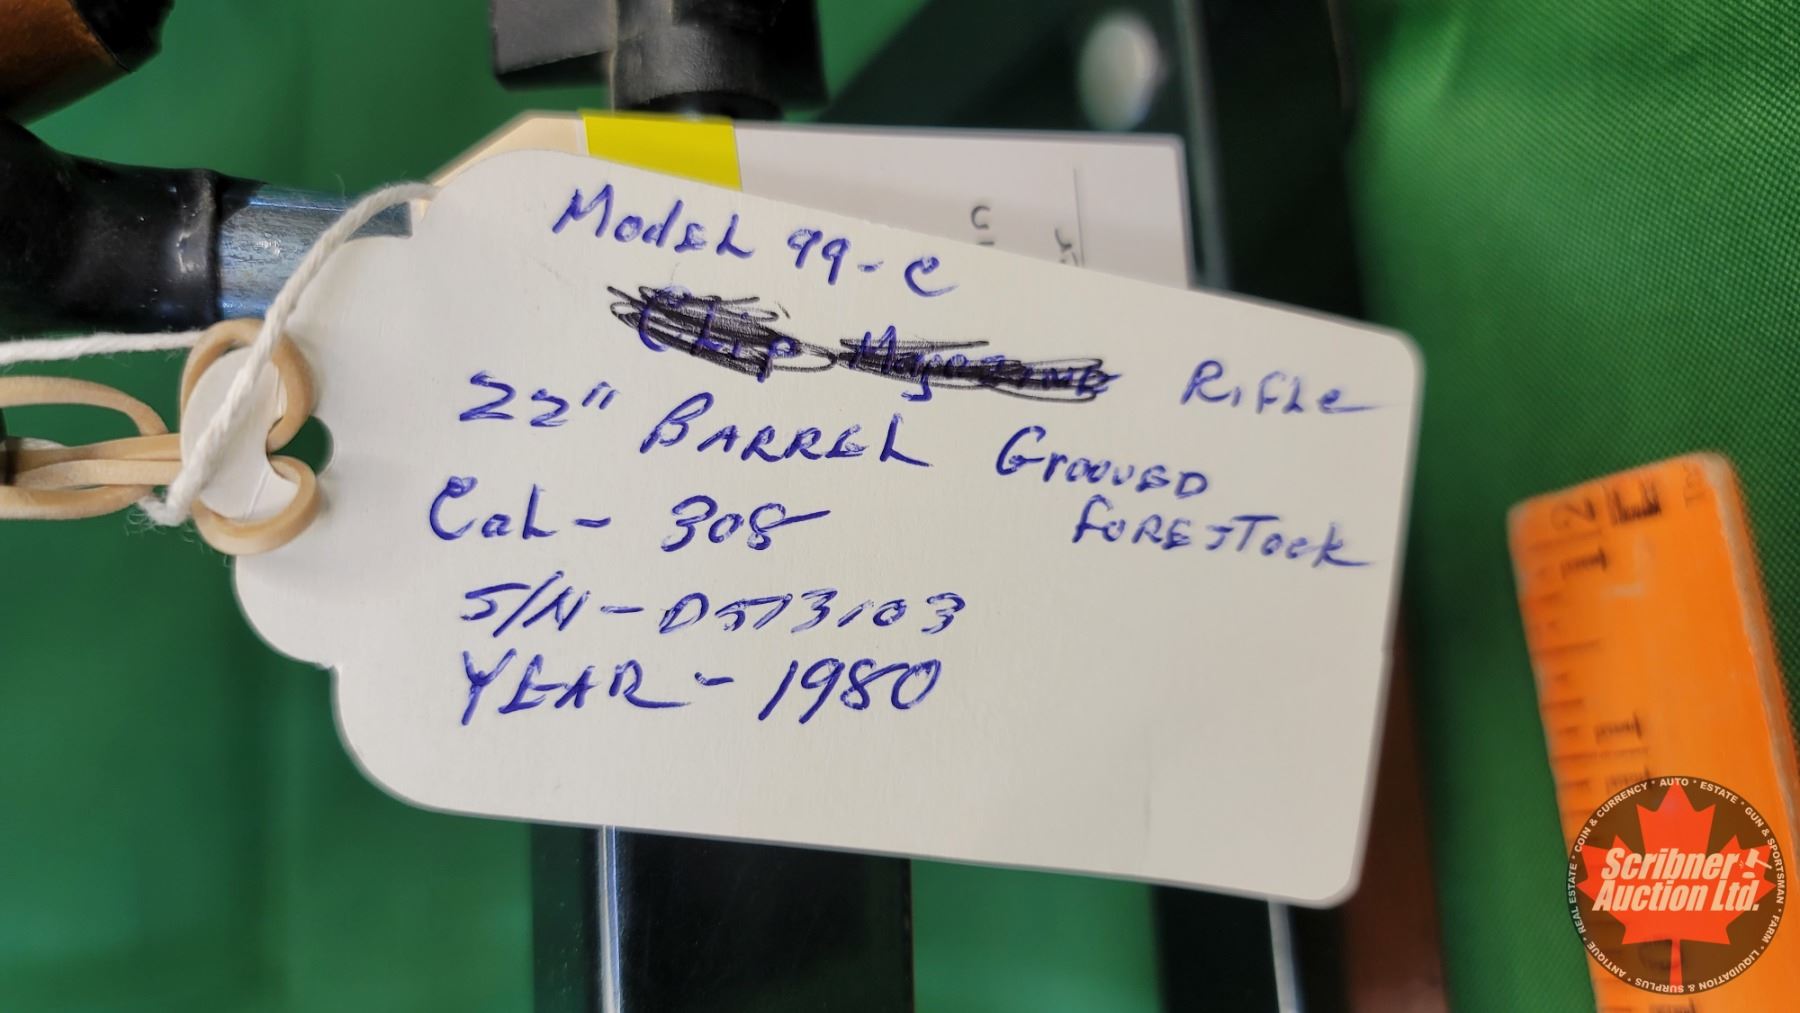 Model 99-C
Clip Magazine Rifle
22" Barrel Grooved
Forestock
Cal- 308
S/N- D573103
YEAR- 1980
COIN & CURRENCY • AUTO • ESTATE • GUN & SPORTSMAN • FARM • LIQUIDATION & SURPLUS • ANTIQUE • REAL ESTATE
Scribner
Auction Ltd.